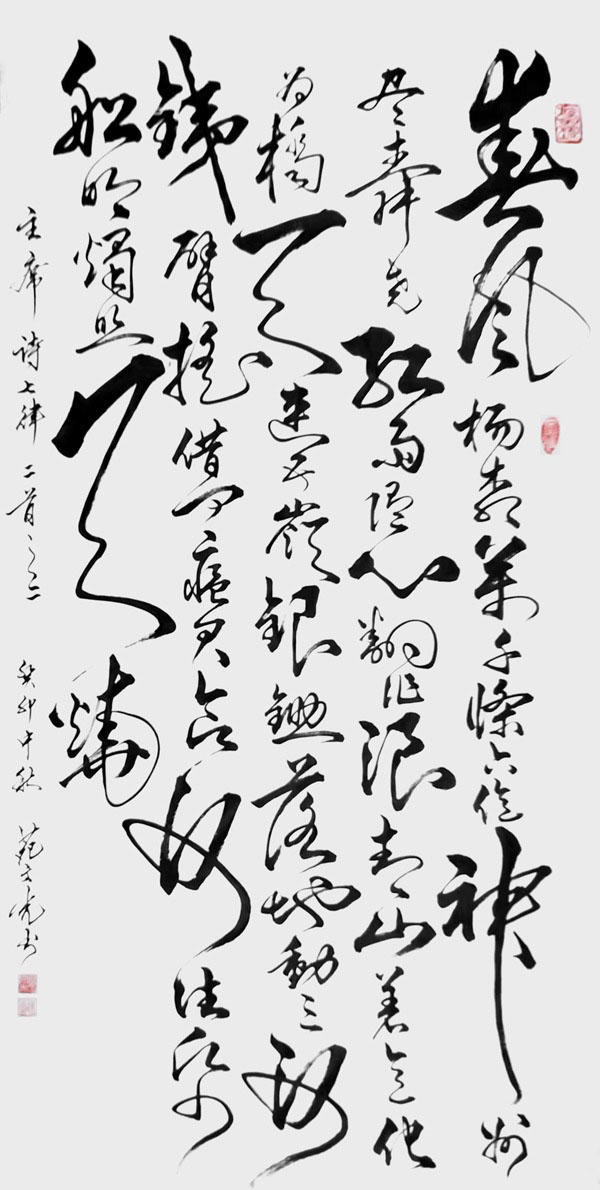 春风杨柳萬千條六億神州
尽舜尧红雨随心翻作浪青山着意化
为橋天連五嶺銀鋤落地動三河
鐵臂摇借问瘟君欲何往纸
船明燭照天燒
主席诗七律二首之二 癸卯中秋 范文书